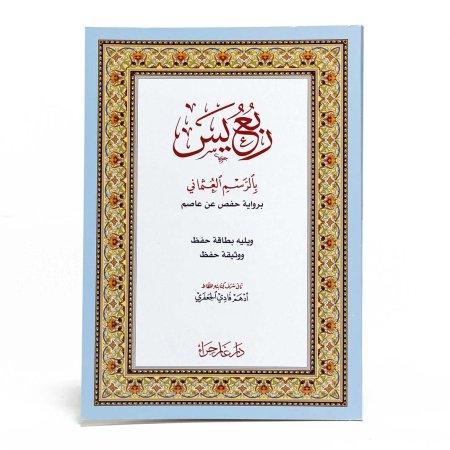 ربع يس
بالرسم العثماني
برواية حفص عن عاصم
ويليه بطاقة حفظ
ووثيقة حفظ
أدهم فادي الجعفري
دار غار حراء